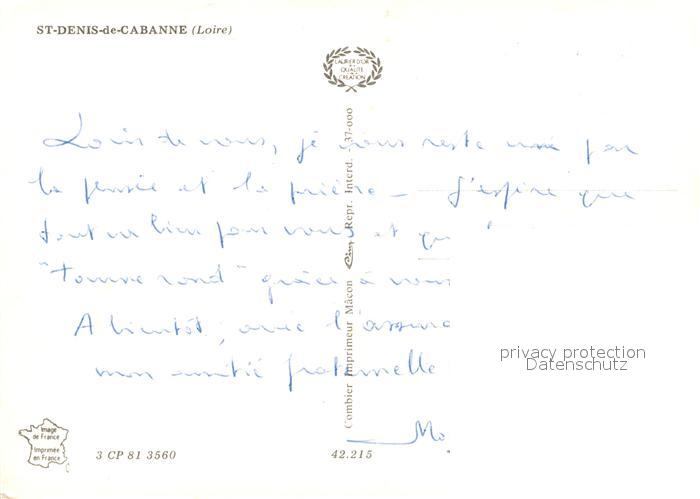 ST-DENIS-de-CABANNE (Loire)
LAURIER D'OR
QUALITÉ
CRÉATION
Loin de vous, je vous reste uni par
la pensée et la prière - J'espère que
tout va bien pour vous et qu
"tourne rond" grâce à vous
A bientôt, avec l'assurc
mon amitié fraternelle
Mo
Combier Imprimeur Mâcon Repr. Interd. 37-000
privacy protection
Datenschutz
Image
de France
Imprimée
en France
3 CP 81 3560
42.215